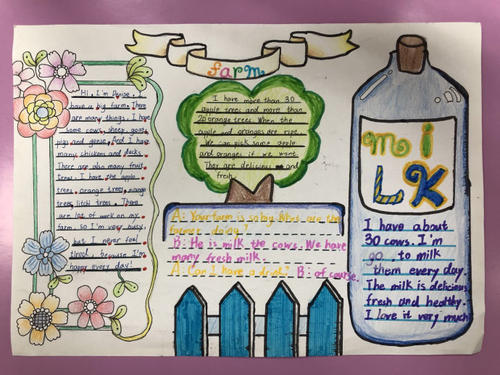 farm
Hi, I'm
have a big farm. There
are many things. I have
some cows, sheep, goats,
pigs and geese. And I have
many chickens and ducks.
There are also many fruit
trees. I have the apple
trees, orange trees,
trees, litchi trees. There
are lot of work on my
farm, so I'm very busy,
but I never feel
tired, because I'm
happy every day!
I have more than 30
apple trees and more than
20 orange trees. When the
apple and oranges are ripe,
We can pick some apple
and oranges if we want.
They are delicious and
fresh.
A: Your farm is so big. What are the
farmer doing?
B: He is milk the cows. We have
many fresh milk.
A: Can I have a drink? B: of course.
miLK
I have about
30 cows. I'm
go to milk
them every day.
The milk is delicious,
fresh and healthy.
I love it very much